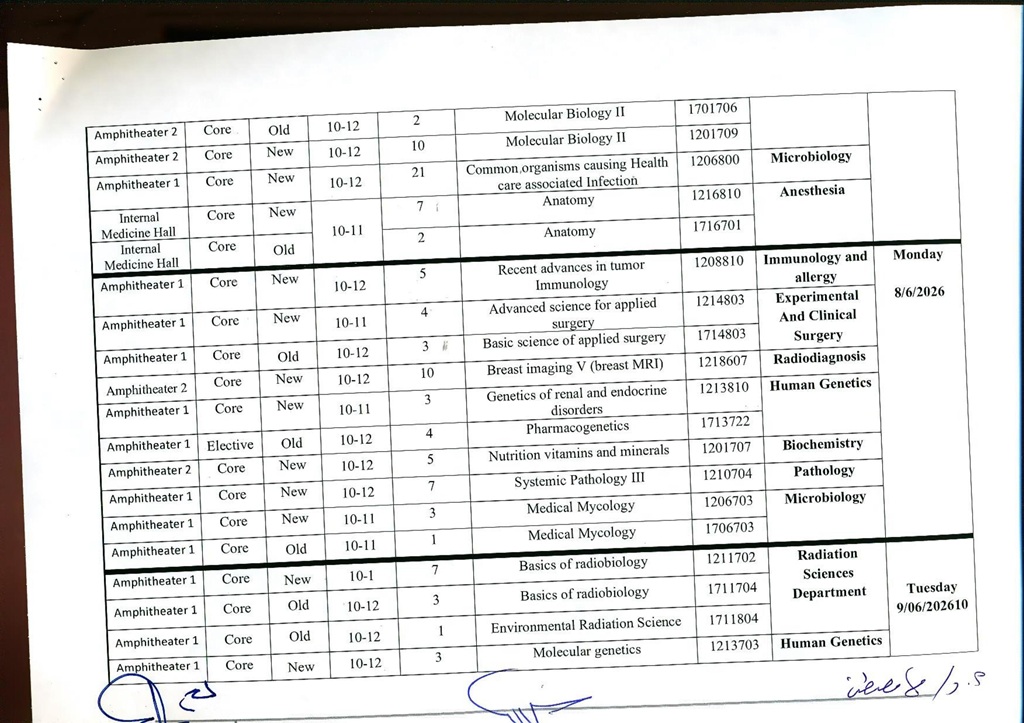 Amphitheater 2 Core Old 10-12 2 Molecular Biology II 1701706
Amphitheater 2 Core New 10-12 10 Molecular Biology II 1201709
Amphitheater 1 Core New 10-12 21 Common,organisms causing Health care associated Infection 1206800 Microbiology
Internal Medicine Hall Core New 10-11 7 Anatomy 1216810 Anesthesia
Internal Medicine Hall Core Old 2 Anatomy 1716701
Amphitheater 1 Core New 10-12 5 Recent advances in tumor Immunology 1208810 Immunology and allergy Monday 8/6/2026
Amphitheater 1 Core New 10-11 4 Advanced science for applied surgery 1214803 Experimental And Clinical Surgery
Amphitheater 1 Core Old 10-12 3 Basic science of applied surgery 1714803
Amphitheater 2 Core New 10-12 10 Breast imaging V (breast MRI) 1218607 Radiodiagnosis
Amphitheater 1 Core New 10-11 3 Genetics of renal and endocrine disorders 1213810 Human Genetics
Amphitheater 1 Elective Old 10-12 4 Pharmacogenetics 1713722
Amphitheater 2 Core New 10-12 5 Nutrition vitamins and minerals 1201707 Biochemistry
Amphitheater 1 Core New 10-12 7 Systemic Pathology III 1210704 Pathology
Amphitheater 1 Core New 10-11 3 Medical Mycology 1206703 Microbiology
Amphitheater 1 Core Old 10-11 1 Medical Mycology 1706703
Amphitheater 1 Core New 10-1 7 Basics of radiobiology 1211702 Radiation Sciences Department Tuesday 9/06/202610
Amphitheater 1 Core Old 10-12 3 Basics of radiobiology 1711704
Amphitheater 1 Core Old 10-12 1 Environmental Radiation Science 1711804
Amphitheater 1 Core New 10-12 3 Molecular genetics 1213703 Human Genetics